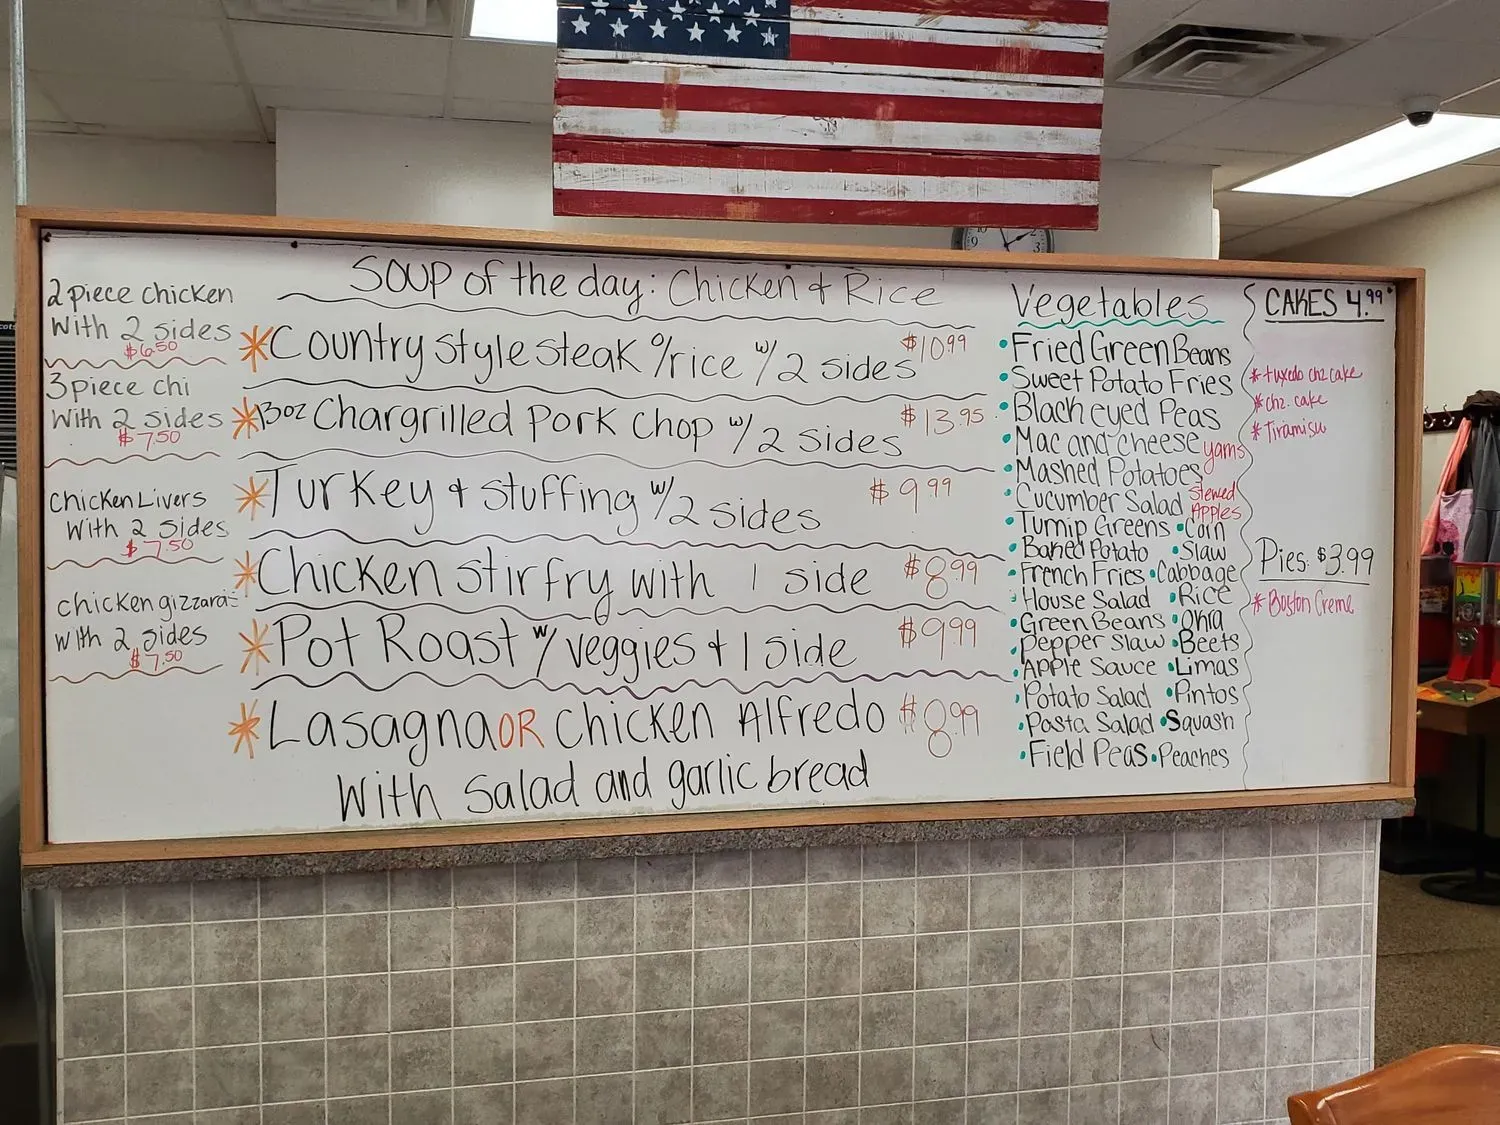 2 piece chicken
With 2 sides
$6.50
3 piece chi
With 2 sides
$7.50
Chicken Livers
With 2 sides
$7.50
chicken gizzards
With 2 sides
$7.50
Soup of the day: Chicken & Rice
*Country style steak o/rice w/2 sides $10.99
*13oz Chargrilled Pork Chop w/2 sides $13.95
*Turkey & stuffing w/2 sides $9.99
*Chicken stir fry with 1 side $8.99
*Pot Roast w/veggies & 1 side $9.99
*Lasagna OR chicken Alfredo $8.99
With Salad and garlic bread
Vegetables
•Fried Green Beans
•Sweet Potato Fries
•Black eyed Peas
•Mac and cheese yams
•Mashed Potatoes
•Cucumber Salad Stewed Apples
•Turnip Greens •Corn
•Baked Potato •Slaw
•French Fries •Cabbage
•House Salad •Rice
•Green Beans •Okra
•Pepper Slaw •Beets
•Apple Sauce •Limas
•Potato Salad •Pintos
•Pasta Salad •Squash
•Field Peas •Peaches
CAKES 4.99
*tuxedo chz cake
*chz. cake
*Tiramisu
Pies: $3.99
*Boston Creme